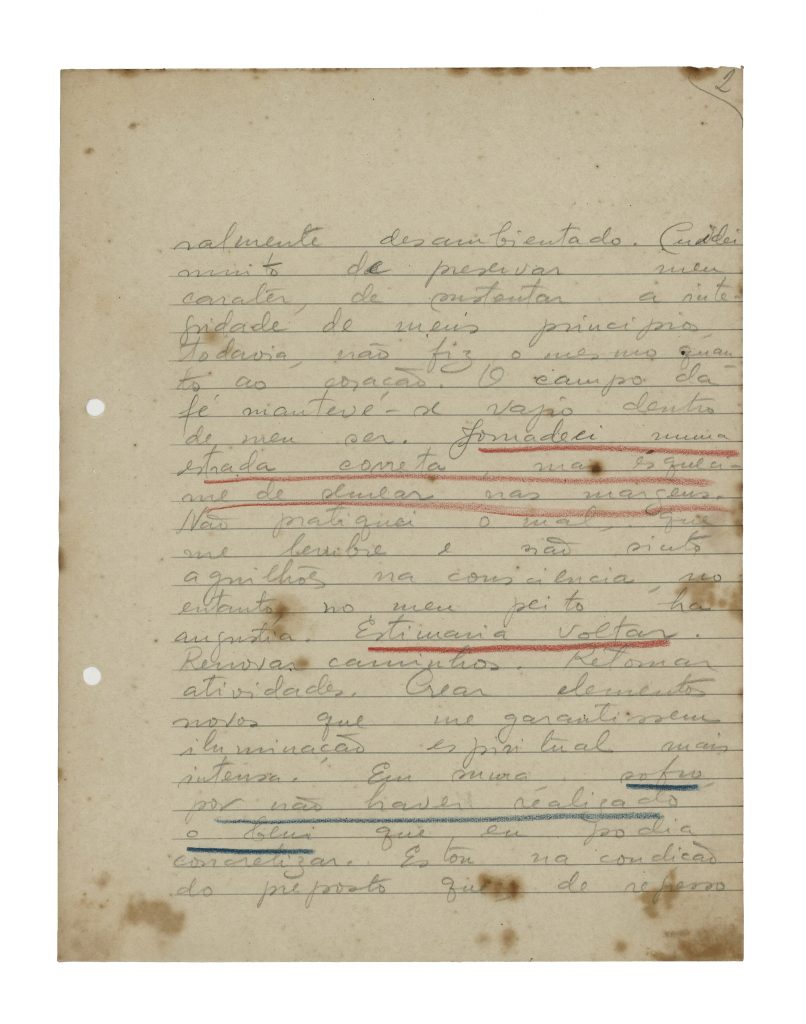 2
ralmente desambientado. Cuidei
muito de preservar meu
carater, de sustentar a inte-
gridade de meus principios,
todavia, não fiz o mesmo quan-
to ao coração. O campo da
fé manteve-se vazio dentro
de meu ser. Jornadeei numa
estrada correta, mas esqueci-
me de semear nas margens.
Não pratiquei o mal, que
me lembre e não sinto
aguilhões na consciencia, no
entanto, no meu peito ha
angustia. Estimaria voltar.
Renovar caminhos. Retomar
atividades. Crear elementos
novos que me garantissem
iluminação espiritual mais
intensa. Em suma sofro,
por não haver realizado
o bem que eu podia
concretizar. Estou na condição
do preposto que, de regresso